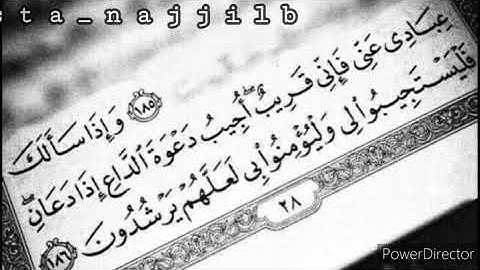 s t a _ n a j j i l b
﴿١٨٥﴾ وَإِذَا سَأَلَكَ
عِبَادِى عَنِّى فَإِنِّى قَرِيبٌ ۖ أُجِيبُ دَعْوَةَ ٱلدَّاعِ إِذَا دَعَانِ ۖ
فَلْيَسْتَجِيبُوا۟ لِى وَلْيُؤْمِنُوا۟ بِى لَعَلَّهُمْ يَرْشُدُونَ ﴿١٨٦﴾
٢٨
PowerDirector